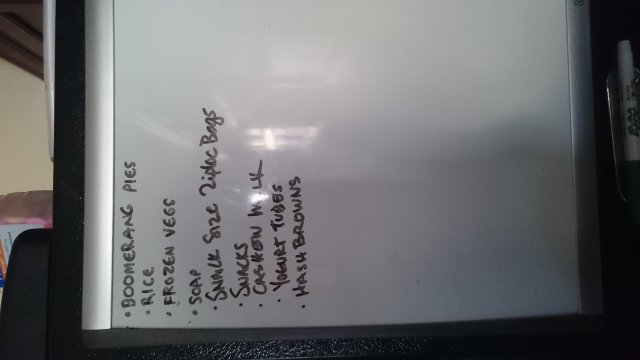 • BOOMERANG PIES
• RICE
• FROZEN VEGS
• SOAP
• SNACK SIZE Ziploc Bags
• SNACKS
• CASHEW MILK
• YOGURT TUBES
• HASH BROWNS